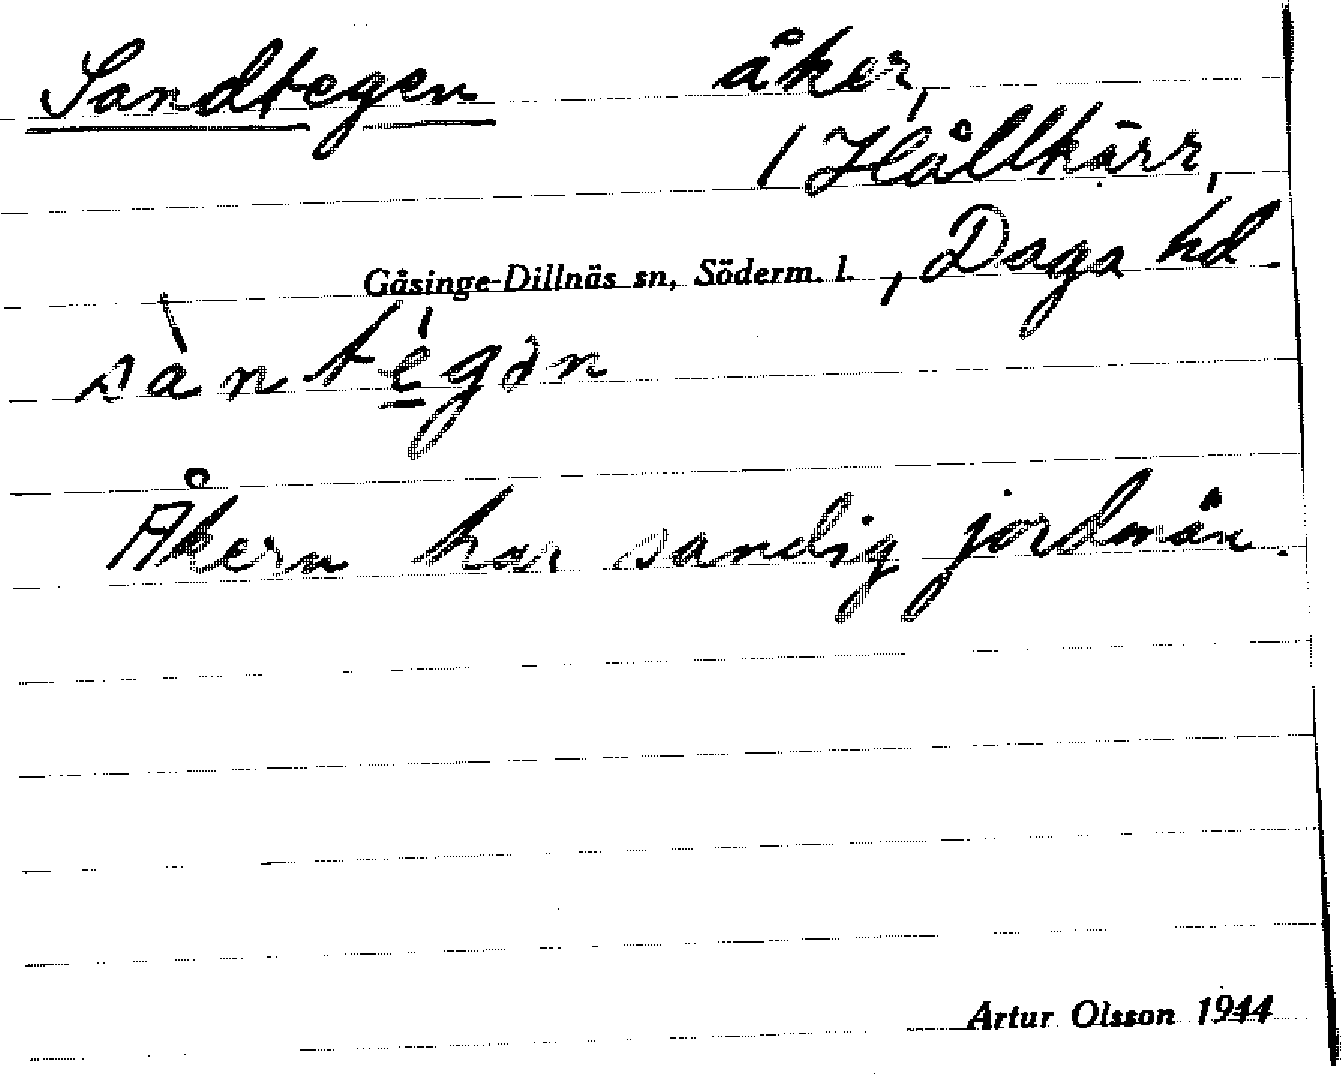 Sandtegen åker,
/ Hållkärr,
Gåsinge-Dillnäs sn, Söderm. l. , Daga hd.
sàntégən
Åkern har sandig jordmån.
Artur Olsson 1944